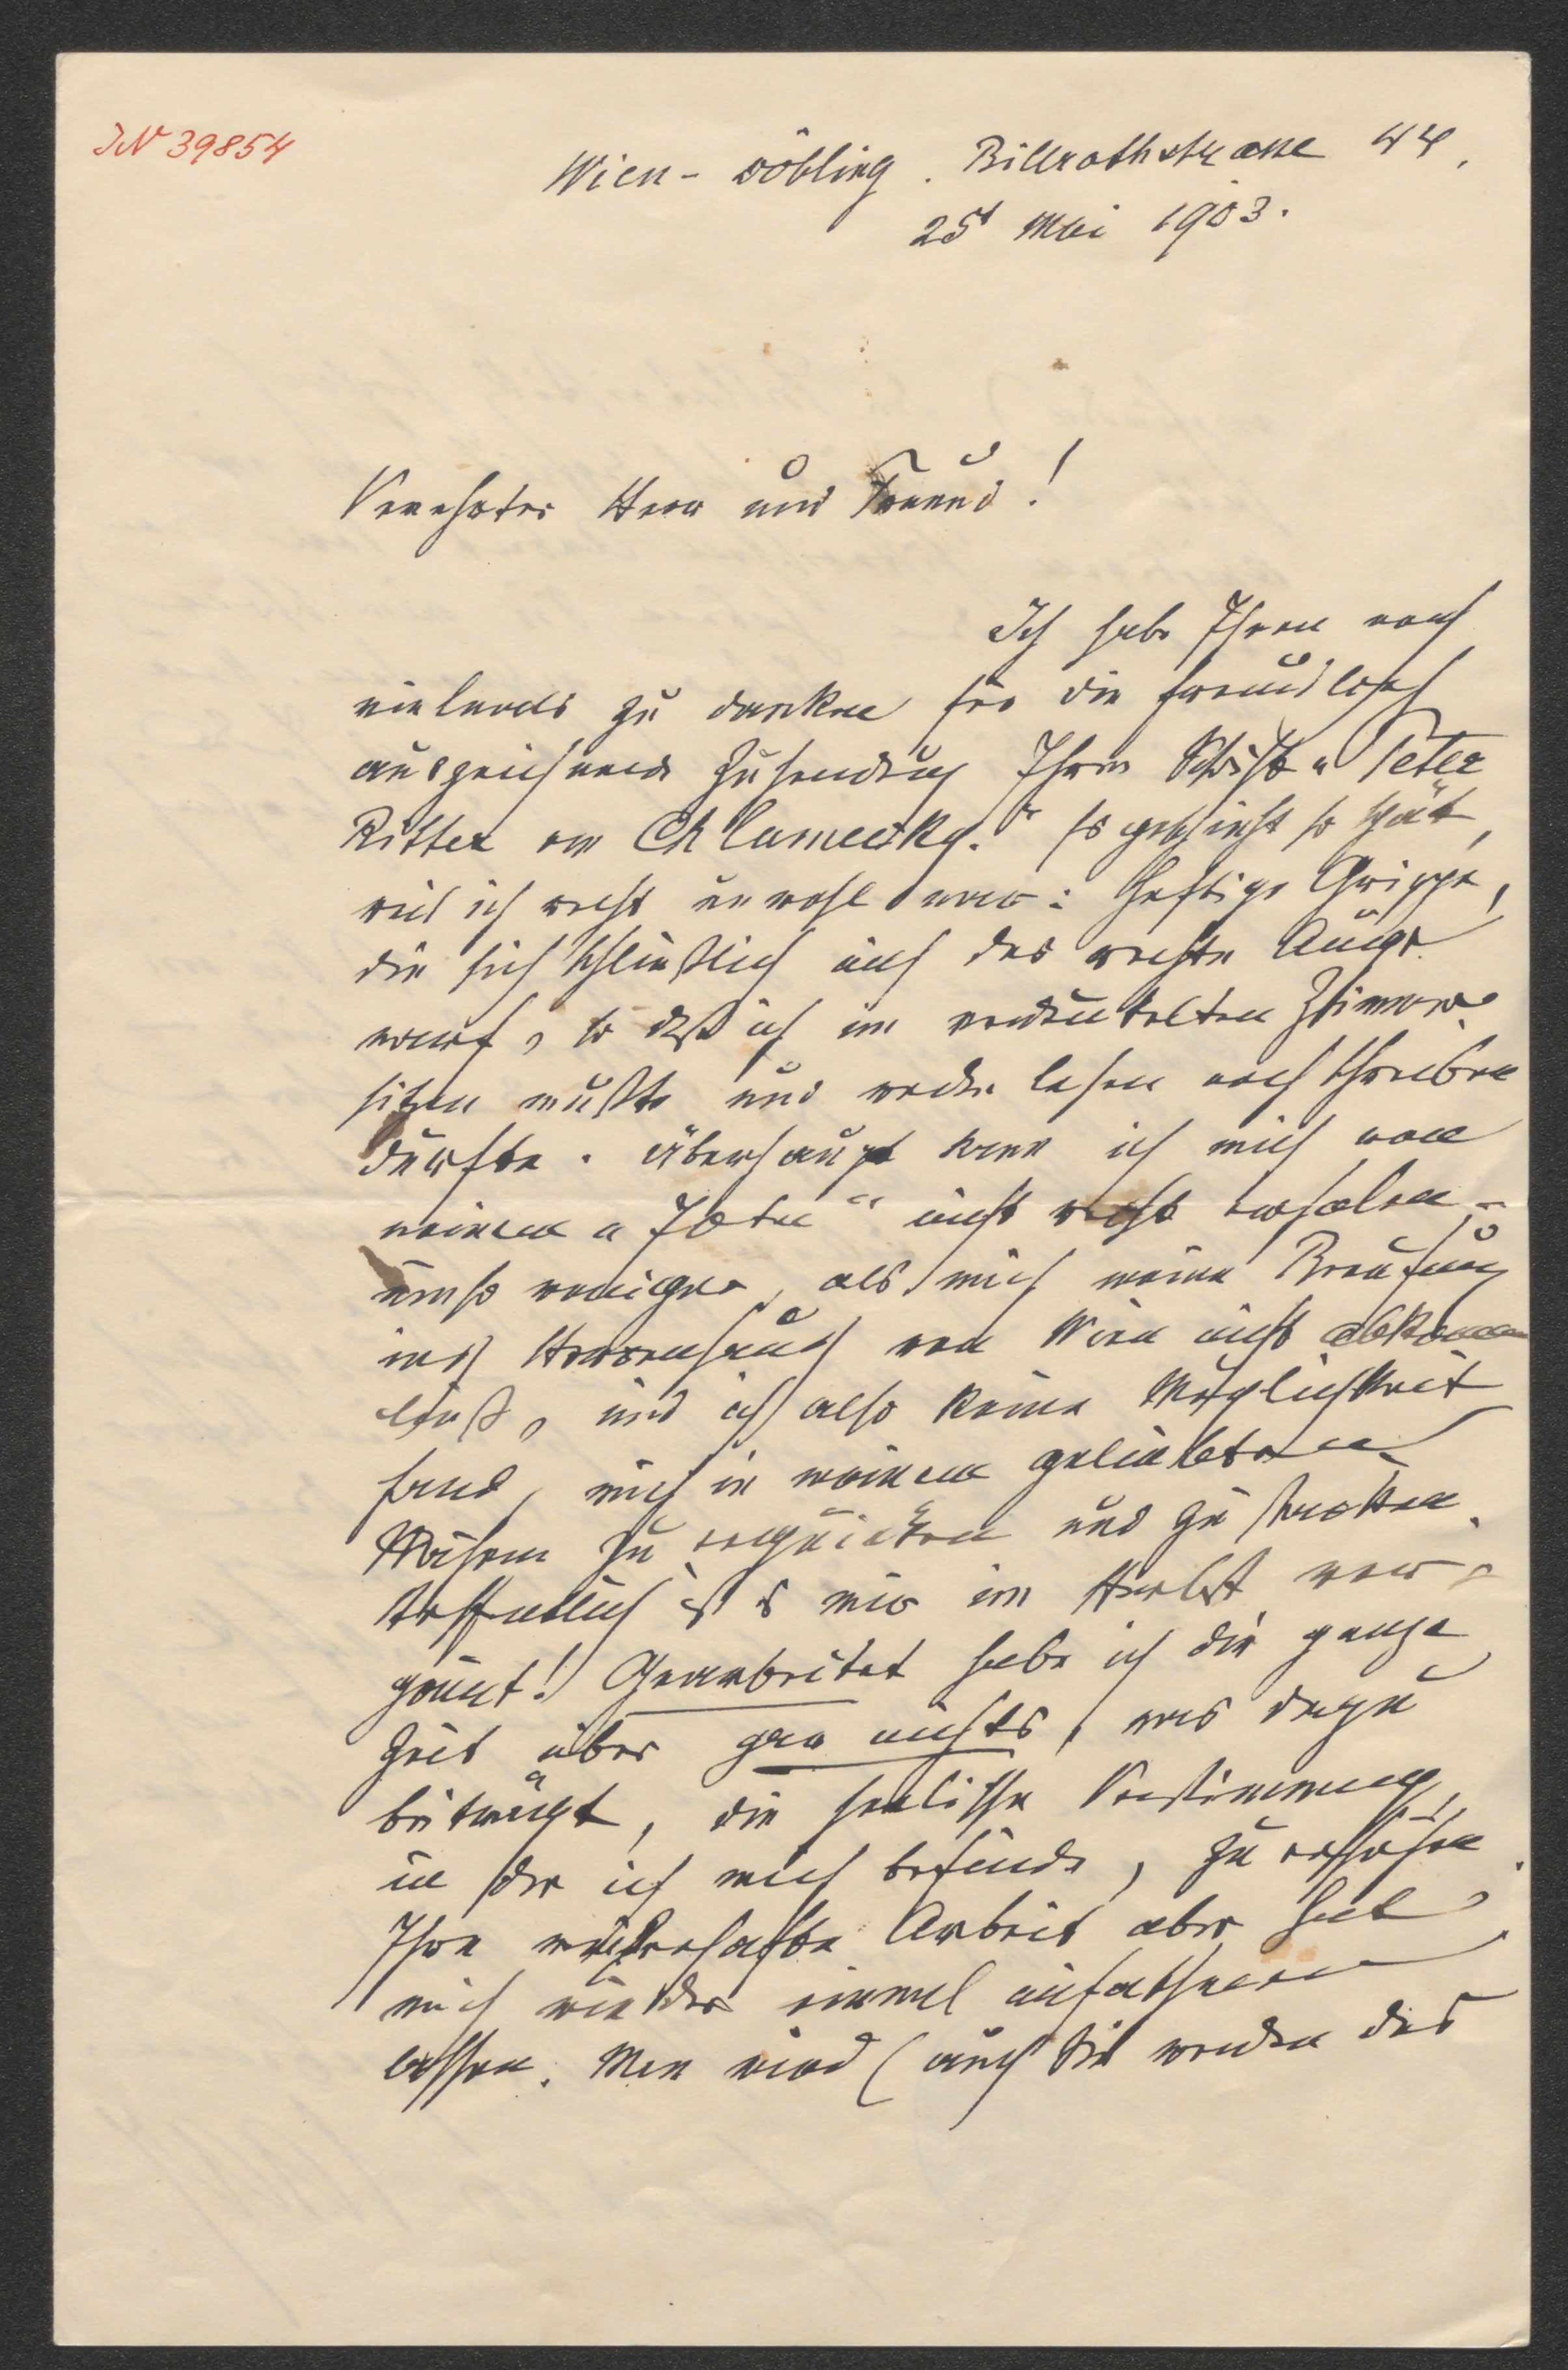 IN 39854
Wien-Döbling. Billrothstrasse 44,
25t Mai 1903.
Verehrter Herr und Freund!
Ich habe Ihnen noch
vielmals zu danken für die freundlichst
auszeichnende Zusendung Ihrer Schrift „Peter
Ritter von Chlumecky." Es geschieht so spät,
weil ich recht unwohl war: heftige Grippe,
die sich schließlich auf das rechte Auge
warf, so daß ich im verdunkelten Zimmer
sitzen mußte und weder lesen noch schreiben
durfte. Überhaupt kann ich mich von
meinem nicht recht erholen –
umso weniger, als mich meine Berufung
ins Herrenhaus von Wien nicht abkommen
ließ, und ich also keine Möglichkeit
fand, mich in meinem geliebten
Mähren zu erquicken und zu stärken.
Hoffentlich ist es mir im Herbst ver-
gönnt! Gearbeitet habe ich die ganze
Zeit über gar nichts, was dazu
beiträgt, die seelische Verstimmung,
in der ich mich befinde, zu erhöhen.
Ihre meisterhafte Arbeit aber hat
mich wieder einmal aufathmen
lassen. Man wird (auch Sie werden das